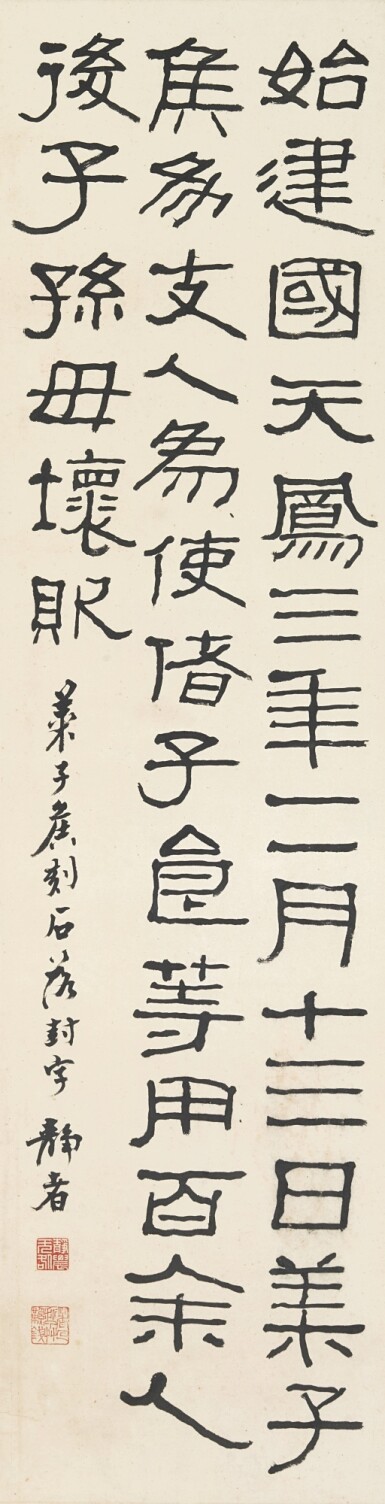 始建國天鳳三年二月十三日萊子
侯為支人為使偖子食等用百余人
後子孫毋壞敗
萊子侯刻石落封字 靜者